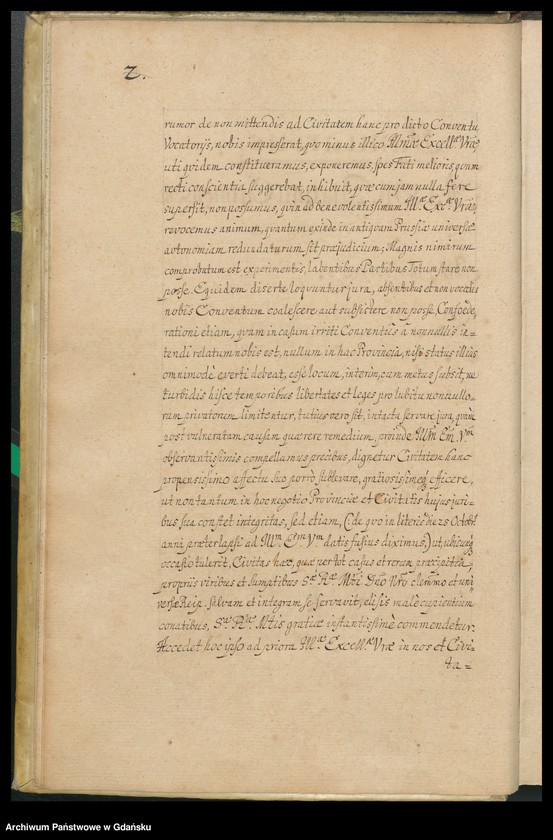 2.
rumor de non mittendis ad Civitatem hanc pro dicto Conventu
Vocatorijs, nobis impresserat, quo minus illico Illmæ Excell.æ Vræ
uti quidem constitueramus, exponeremus, spes Facti melioris, quam
recti conscientia suggerebat, inhibuit, quæ cum jam nulla fere
supersit, non possumus, quin ad benevolentissimum Ill.æ Exc.æ Vræ
revocemus animum, quantum exinde in antiquam Prussiæ universæ
avtonomiam redundaturum sit præjudicium; Magnis nimirum
comprobatum est experimentis, labentibus Partibus Totum stare non
posse. Equidem diserte loquuntur jura, absentibus et non vocatis
nobis Conventum coalescere aut subsistere non posse, Confoede,
rationi etiam, quam in casum irriti Conventûs à nonnullis in=
tendi relatum nobis est, nullum in hac Provincia, nisi status illius
omnimodè everti debeat, esse locum, interim, cum metus subsit, ne
turbidis hisce temporibus libertates et leges pro lubitu nonnullo=
rum privatorum limitentur, tutius vero sit, intacta servare jura, quàm
post vulneratam causam quærere remedium, proinde Illm Em Vm
observantissimis compellamus precibus, dignetur Civitatem hanc
propensissimo affectu suo porrò sublevare, gratiosissimeq efficere,
ut non tantum in hoc negotio Provinciæ et Civitatis hujus juri=
bus sua constet integritas, sed etiam, (:de quo in literis die 25 Octobr
anni præterlapsi ad Illm Em Vm datis fusius diximus,:) ut, ubicunq
occasio tulerit, Civitas hæc, quæ per tot casus et rerum præcipitia
propriis viribus et sumptibus S.æ R.æ Mtti Dno Nro clemmo et uni
versæ Reip. salvam et integram se servavit, elisis malè cupientium
conatibus, S.æ R.æ Mtis gratiæ instantissimè commendetur.
Accedet hoc ipso ad priora Ill.æ Excell.æ Vræ in nos et Civi=
ta=
Archiwum Państwowe w Gdańsku